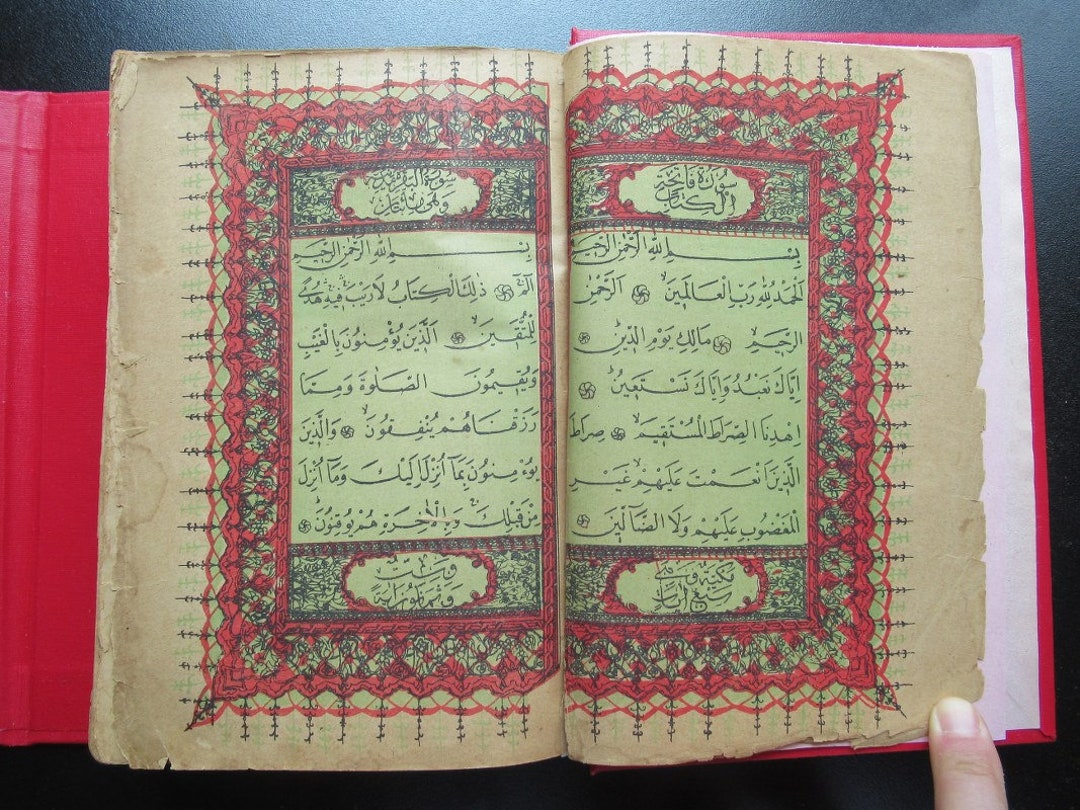 سورة فاتحة
الكتاب
بِسْمِ اللّٰهِ الرَّحْمٰنِ الرَّحِيمِ
اَلْحَمْدُ لِلّٰهِ رَبِّ الْعَالَمِينَ ۙ اَلرَّحْمٰنِ
الرَّحِيمِ ۙ مَالِكِ يَوْمِ الدِّينِ
اِيَّاكَ نَعْبُدُ وَاِيَّاكَ نَسْتَعِينُ ۗ
اِهْدِنَا الصِّرَاطَ الْمُسْتَقِيمَ ۙ صِرَاطَ
الَّذِينَ اَنْعَمْتَ عَلَيْهِمْ ۙ غَيْرِ
الْمَغْضُوبِ عَلَيْهِمْ وَلَا الضَّالِّينَ
مكية وهي
سبع آيات
سورة البقرة
بِسْمِ اللّٰهِ الرَّحْمٰنِ الرَّحِيمِ
الٓمٓ ۚ ذٰلِكَ الْكِتَابُ لَا رَيْبَ ۛ فِيهِ ۛ هُدًى
لِلْمُتَّقِينَ ۙ اَلَّذِينَ يُؤْمِنُونَ بِالْغَيْبِ
وَيُقِيمُونَ الصَّلٰوةَ وَمِمَّا
رَزَقْنَاهُمْ يُنْفِقُونَ ۙ وَالَّذِينَ
يُؤْمِنُونَ بِمَٓا اُنْزِلَ اِلَيْكَ وَمَٓا اُنْزِلَ
مِنْ قَبْلِكَ ۚ وَبِالْاٰخِرَةِ هُمْ يُوقِنُونَ ۗ